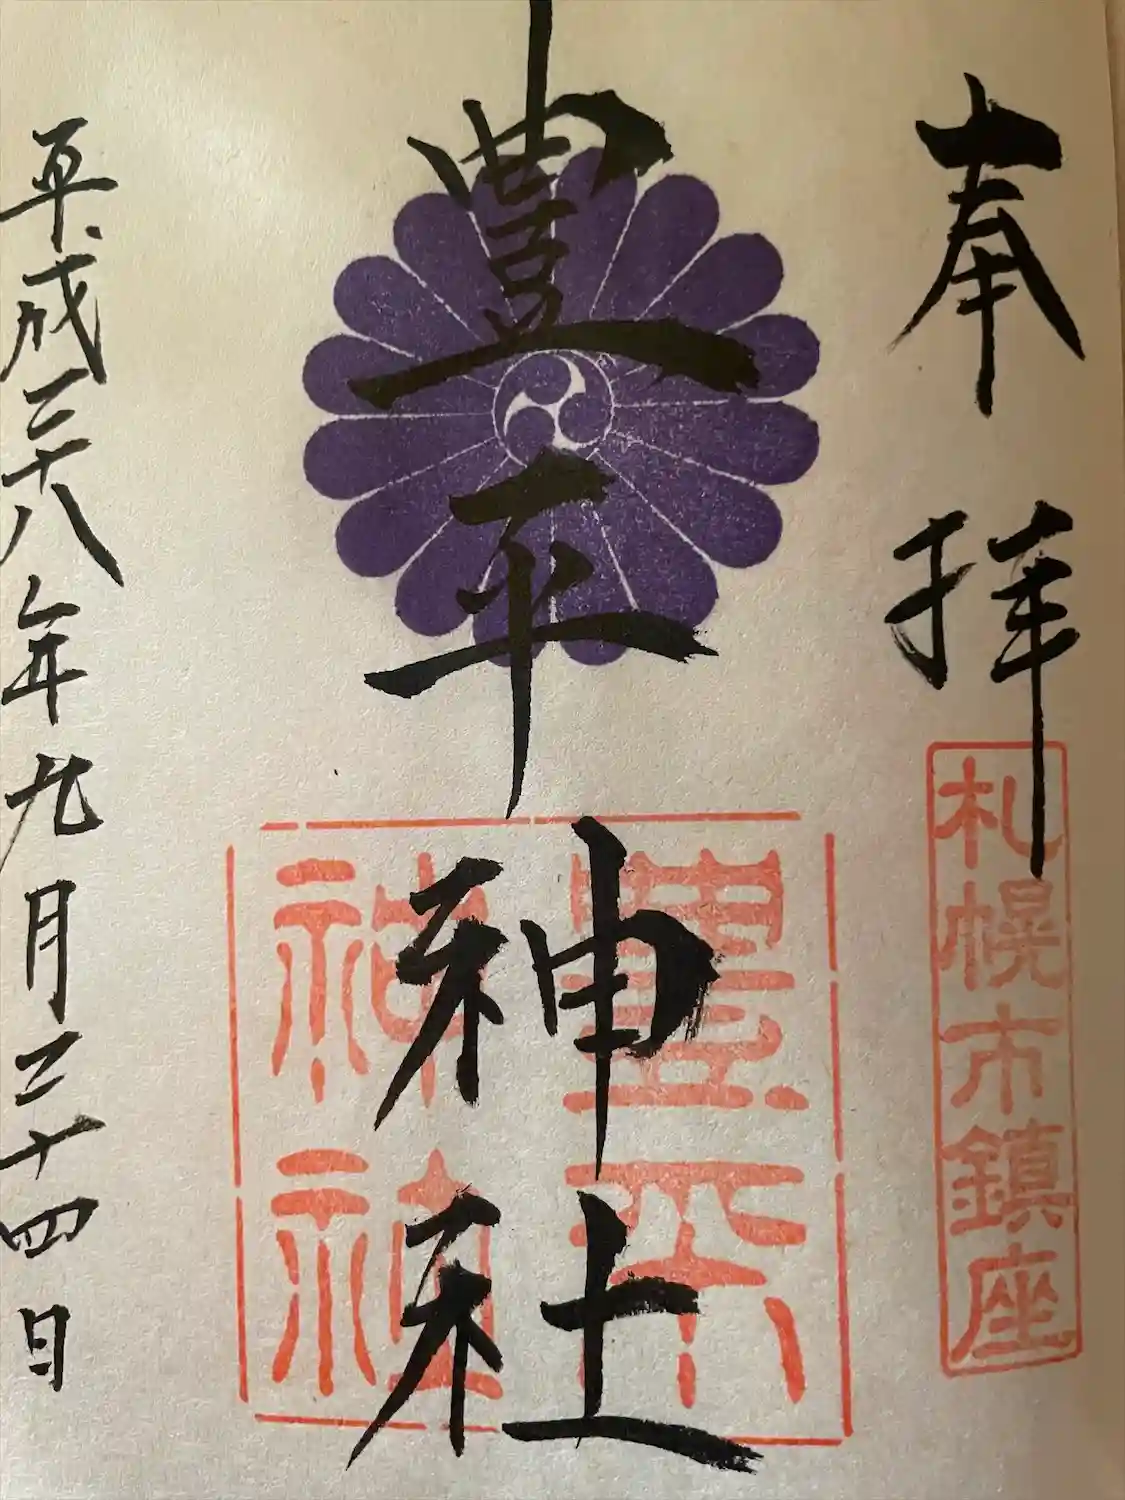 奉拝
札幌市鎮座
豊平神社
豐平
神社
平成二十八年九月二十四日